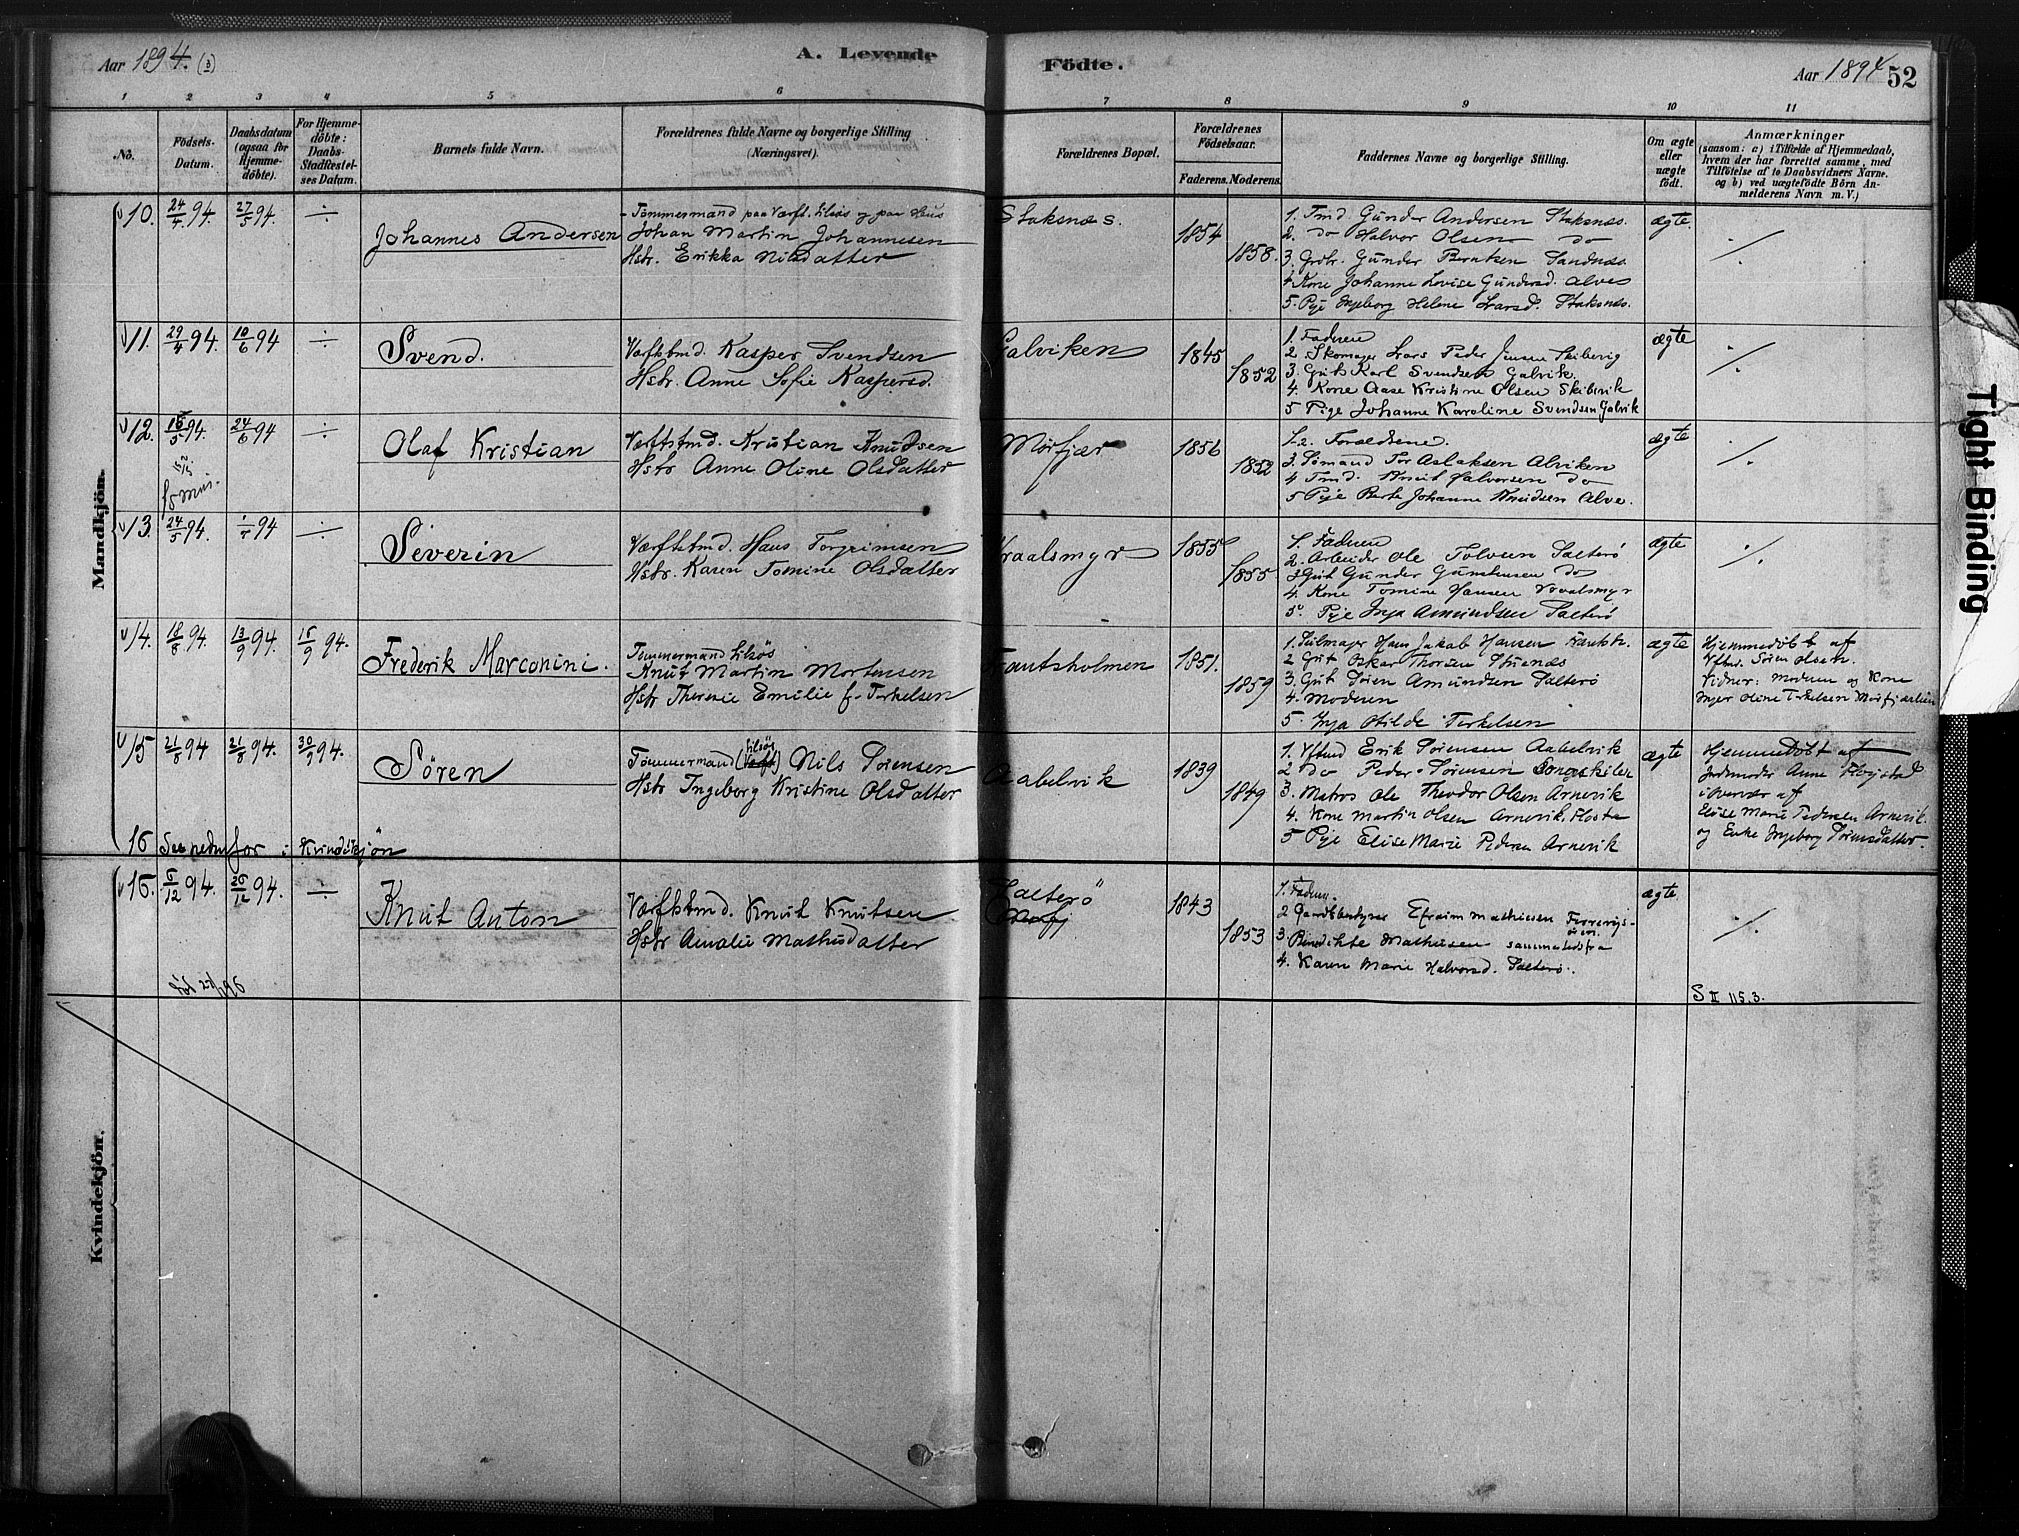 Aar 1894. (3)
A. Levende
Födte.
Aar 1894
52
1 2 3 4 5 6 7 8 9 10 11
No.
Födsels-Datum.
Daabsdatum (ogsaa for Hjemme-döbte).
For Hjemme-döbte: Daabs-Stadfæstel-ses Datum.
Barnets fulde Navn.
Forældrenes fulde Navne og borgerlige Stilling
(Næringsvei).
Forældrenes Bopæl.
Forældrenes Födselsaar.
Faderens. Moderens.
Faddernes Navne og borgerlige Stilling.
Om ægte eller uægte født.
Anmærkninger
(saasom: a) i Tilfælde af Hjemmedaab,
hvem der har forrettet samme, med
Tilföielse af to Daabsvidners Navne.
og b) ved uægtefödte Börn An-
melderens Navn m. V.)
Mandkjön.
10. 24/4 94. 27/5 94. ÷
Johannes Andersen
Tømmermand paa Værft. tilsøs og paa Huus
Johan Martin Johannesen
Hstr. Erikka Nilsdatter
Staksnæs.
1854
1858.
1. Tmd. Gunder Andersen Staksnæs.
2. do Halvor Olsen do
3. Grdbr. Gunder Berntsen Sandnæs
4. Kone Johanne Lovise Gundersd. Alve
5. Pige Ingeborg Helene Larsd. Staksnæs.
ægte.
./.
11. 29/4 94. 10/6 94 ÷
Svend.
Værftstmd. Kasper Svendsen
Hstr. Anne Sofie Kaspersd.
Galviken
1845
1852
1. Faderen
2 Skomager Lars Peder Jensen Skibevig
3. Gut Karl Svendsen Galvik.
4. Kone Aase Kristine Olsen Skibevik
5 Pige Johanne Karoline Svendsen Galvik
ægte
./.
12. 16/5 94. 24/6 94 ÷
Olaf Kristian
Værftstmd. Kristian Knudsen
Hstr Anne Oline Olsdatter
Mørfjær
1856
1852
1-2. Forældrene.
3. Sømand Tor Aslaksen Alviken
4 Tmd. Knut Halvorsen do
5 Pige Berte Johanne Knudsen Alve.
ægte
./.
13. 24/5 94. 94 ÷
Severin
Værftstmd. Hans Torgrimsen
Hstr. Karen Tomine Olsdatter
Vraalsmyr
1855
1855
1. Faderen
2. Arbeider Ole Tolvsen Salterö
3 Gut Gunder Gundersen do
4. Kone Tomine Hansen Vraalsmyr
5. Pige Inga Amundsen Salterö
ægte
./.
14. 18/8 94. 13/9 94. 16/9 94.
Frederik Marconini.
Tømmermand tilsøs
Knut Martin Mortensen
Hstr Therese Emilie f. Terkelsen
Frantsholmen
1851.
1859
1. Seilmager Hans Jakob Hansen Frantsh.
2 Gut Oskar Thorsen Stuenæs
3. Gut Søren Amundsen Salterö
4. Moderen
5. Inga Hilde Terkelsen
ægte
Hjemmedøbt af
Vftmd. Søren Olsen.
Vidner: Moderen og Kone
Inger Oline Terkelsen Mørfjærheien
15 21/8 94 21/8 94. 30/9 94.
Sören
Tømmermand (tilsøs) Nils Sørensen
Hstr Ingeborg Kristine Olsdatter
Aabelvik
1839
1849
1. Vftmd Erik Sørensen Aabelvik
2 Do Peder Sørensen Songekilen
3. Matros Ole Theodor Olsen Arnevik
4. Kone Martin Olsen Arnevik, Flosta
5 Pige Elise Marie Pedersen Arnevik
ægte
Hjemmedöbt af
Jordmoder Anne Fløistad
i Overvær af
Elise Marie Pedersen Arnevik
og Enke Ingeborg Sørensdatter.
16 See nedenfor i Kvindekjön
16. 6/12 94. 26/12 94. ÷
Knut Anton
Værftstmd. Knut Knutsen
Hstr Amalie Mathisdatter
Salterö
1843
1853
1. Faderen.
2 Gaardbestyrer Efraim Mathiesen
3. Benedikte Mathisen sammestedsfra
4. Karen Marie Halvorsd. Salterö.
ægte
./.
S II 115.3.
Kvindekjön.
Tight Binding